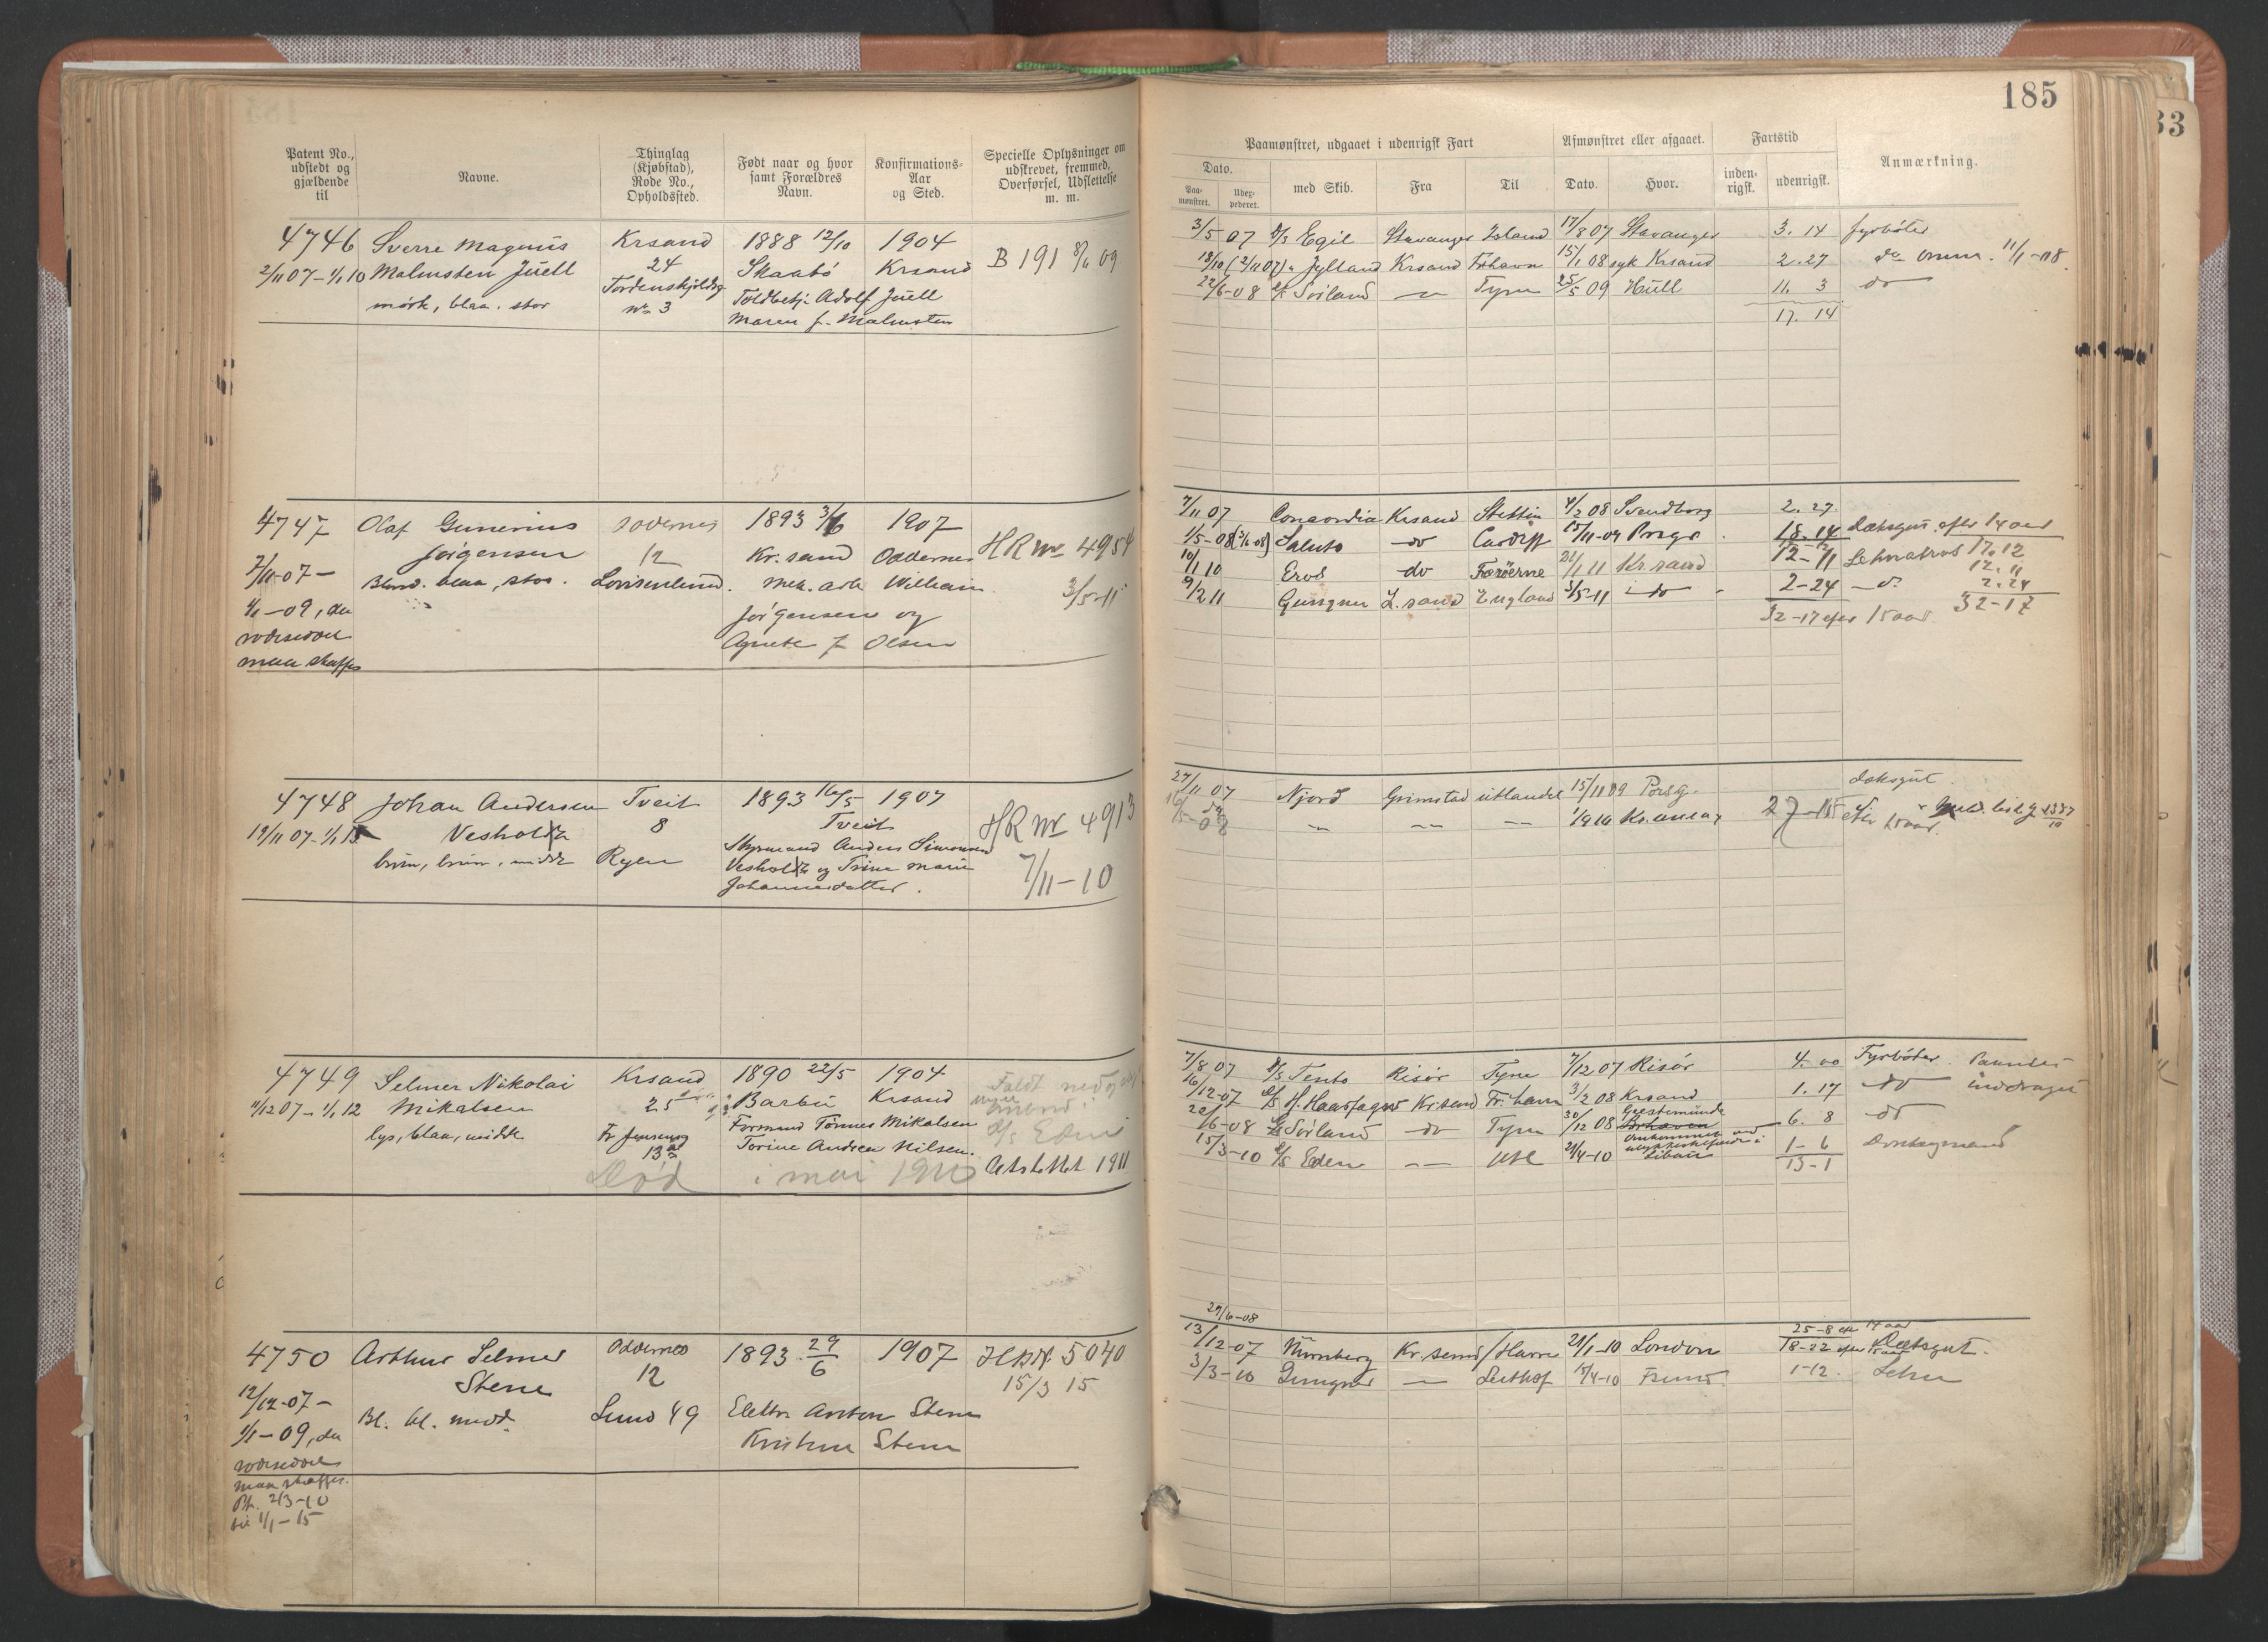 185
33
Patent No., udstedt og gjældende til
Navne.
Thinglag (Kjøbstad), Rode No., Opholdssted.
Født naar og hvor samt Forældres Navn.
Konfirmations-Aar og Sted.
Specielle Oplysninger om udskrevet, fremmed, Overførsel, Udslettelse m. m.
Paamønstret, udgaaet i udenrigsk Fart
Afmønstret eller afgaaet.
Fartstid
Anmærkning.
Dato.
Paa-mønstret.
med Skib.
Fra
Til
Dato.
Hvor.
inden-rigsk.
udenrigsk.
4746 Sverre Magnus Krsand 1888 12/10 1904
2/11 07-1/1 10 Malmsten Juell 24 Skaatø Krsand B 191 8/6 09
mørk, blaa. stor Tordenskjoldsg Toldbetj. Adolf Juell
No 3 Maren f. Malmsten
3/5 07 D/S Egil Stavanger Island 17/8 07 Stavanger 3. 14 fyrbøter
18/10 (2/11 07) " Jylland Krsand Frhavn 15/1 08 syk Krsand 2.27 do 11/1-08.
22/6-08 D/S Sörland Tyne 25/5 09 Hull 11. 3 do
17. 14
4747 Olaf Gunerius Oddernes 1893 3/6 1907
Jørgensen 12 Kr.sand Oddernes HR No 4954
7/11-07- Blond. blaa, stor. Lovisenlund. Mek. arb William 3/5-11
1/1-09, da Jørgensen og
rodeseddel Agnete f Olsen
maa skaffes
7/11 07 Concordia Krsand Stettin 4/2 08 Svendborg 2.27
1/5-08 Saluto do Cardiff 15/11-09 Prsgr 18.14 Dæksgut. efter 14 aar
10/1 10 Erod do Færøerne 21/1 11 Kr.sand 12-11 Letmatros 17.12
12. 11
9/2 11 Gungner L.sand England 3/5-11 do 2-24 2.24
32-17 efter 15 aar. 32-17
4748 Johan Andersen Tveit 1893 16/5 1907
19/11 07-1/1 13 Vesholdt 8 Tveit HR No 4913
brun, brun, midd Ryen Styrmand Anders Simonsen
Vesholdt og Trine Marie 7/11-10
Johannesdatter.
27/11 07 Njord Grimstad utlandet 15/11 09 Porsg. dæksgut
27-15 efter 15 aar.
4749 Selmer Nikolai Krsand 1890 22/5 1904
11/12 07-1/1 12 Mikalsen 25 Barbu Krsand
lys, blaa, midd Fr Jensensg Formand Tønnes Mikalsen D/S Eden
13 Torine Andrea Nilsen. Utslettet 1911
Død i mai 1910
7/8 07 D/S Tento Risör Tyne 7/12 07 Risör 4. 00 Fyrbøter.
16/12-07 D/S H. Haarfagre Kr.sand Fr. havn 3/2 08 Krsand 1. 17 do inddraget
22/6-08 D/S Sörland do Tyne 30/12 08 Geestemünde 6. 8 do
15/3-10 D/S Eden 21/4-10 Omkommet ved ulykkestilfælde i Libau 1-6 Donkeymand
13-1
4750 Arthur Selmer Oddernes 1893 29/6 1907 HR No 5040
Stene 12 15/3 15
12/12-07- Bl. bl. midd. Lund 49 Elektr. Anton Stene
1/1-09, da Kristine Stene
rodeseddel
maa skaffes.
Pt. 2/3-10
til 1/1-15
29/6-08
13/12-07 Nürnberg Kr.sand Havre 21/1-10 London 25-8 efter 14 aar
18-22 efter 15 aar Dæksgut.
3/3-10 Gungner Leithof 15/4-10 Fr.sund 1-12. Letm